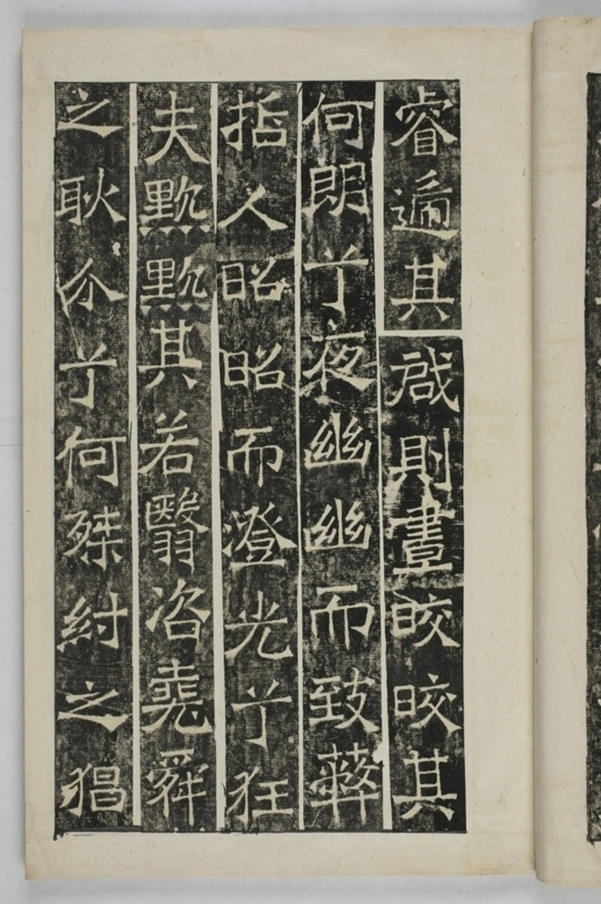 睿遞其啟則晝皎皎其
何朗兮夜幽幽而致
哲人昭昭而澄光兮狂
夫默默其若翳咨堯舜
之耿介兮何桀紂之猖